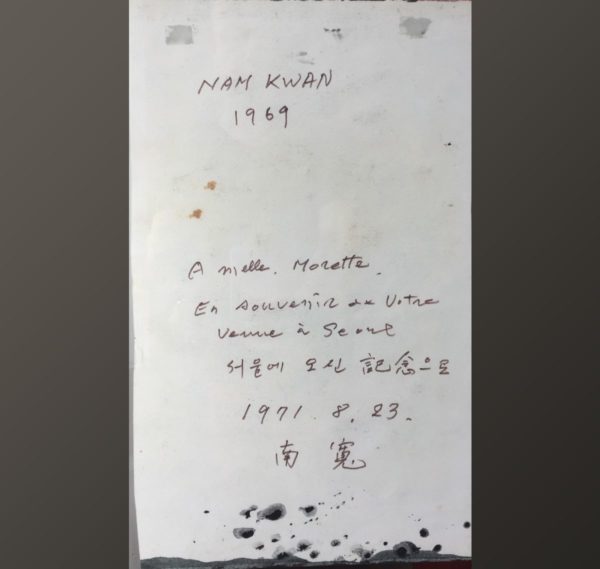 NAM KWAN
1969
A Melle. Morette.
En souvenir de Votre
venue à Seoul
서울에 오신 記念으로
1971. 8. 23.
南 寬